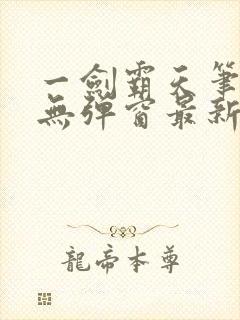 一劍霸天筆
無彈窗最新
龍帝本尊